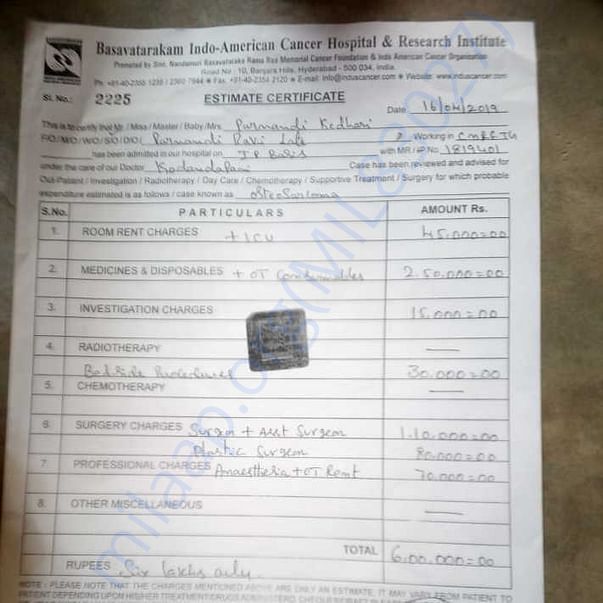 Basavatarakam Indo-American Cancer Hospital & Research Institute
Promoted by Smt. Nandamuri Basavataraka Rama Rao Memorial Cancer Foundation & Indo American Cancer Organisation
Road No : 10, Banjara Hills, Hyderabad - 500 034, India.
Fax: +91-40-2354 2120 E-mail: info@induscancer.com Website: www.induscancer.com
Sl. No.: 2225 ESTIMATE CERTIFICATE
Date 16/04/2019
This is to certify that Mr / Miss / Master / Baby / Mrs Purmandi Kedhari
Purmandi Ravi Working in
has been admitted in our hospital on with MR / IP No. 1819401
under the care of our Doctor Kodandapani Case has been reviewed and advised for
Out-Patient / Investigation / Radiotherapy / Day Care / Chemotherapy / Supportive Treatment / Surgery for which probable
expenditure estimated is as follows / case known as osteosarcoma
S.No. PARTICULARS AMOUNT Rs.
1. ROOM RENT CHARGES + ICU 45,000=00
2. MEDICINES & DISPOSABLES + OT Consumables 2,50,000=00
3. INVESTIGATION CHARGES 15,000=00
4. RADIOTHERAPY —
Bedside Procedures 30,000=00
5. CHEMOTHERAPY —
6. SURGERY CHARGES Surgeon + Asst Surgeon 1,10,000=00
Plastic Surgeon 80,000=00
7. PROFESSIONAL CHARGES Anaesthesia + OT Rent 70,000=00
8. OTHER MISCELLANEOUS —
TOTAL 6,00,000=00
RUPEES Six lakhs only.
NOTE : PLEASE NOTE THAT THE CHARGES MENTIONED ABOVE ARE ONLY AN ESTIMATE, IT MAY VARY FROM PATIENT TO
PATIENT DEPENDING UPON HIS